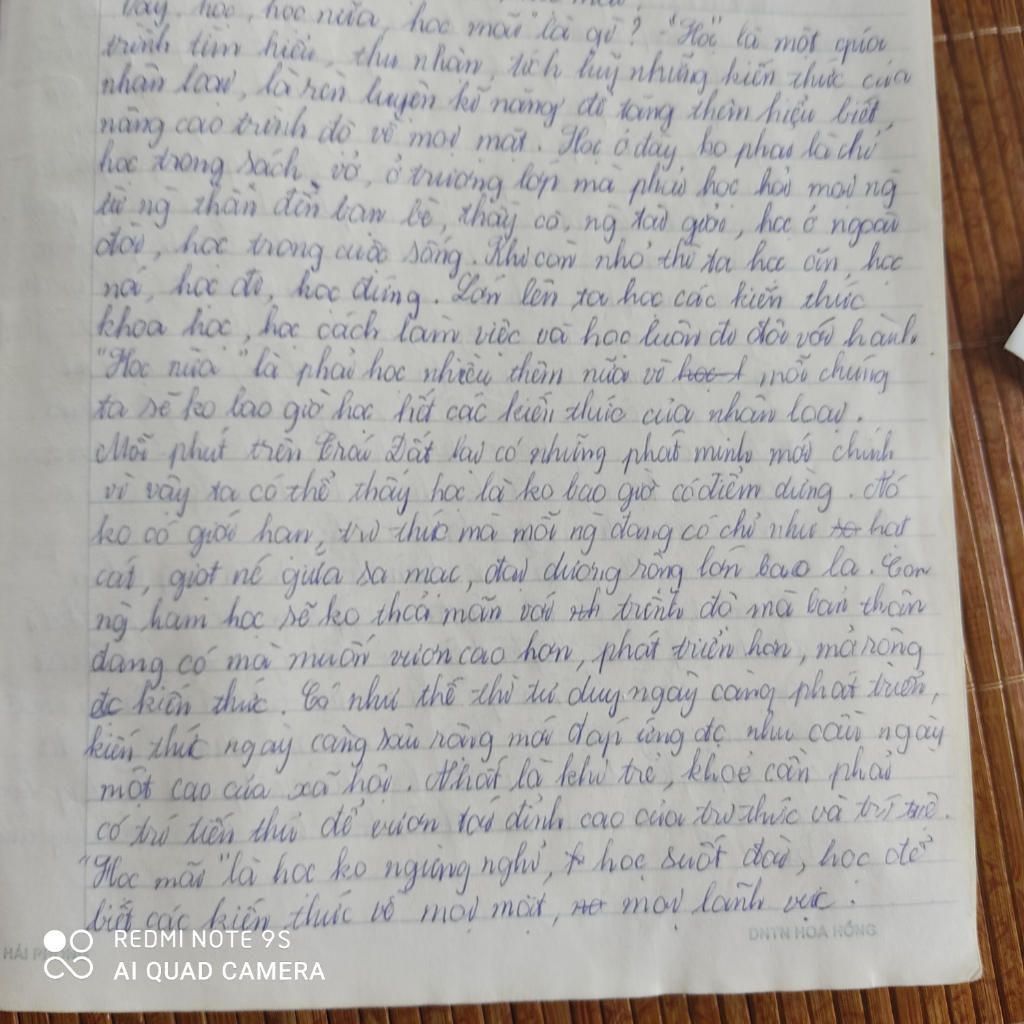 Vậy, học, học nữa, học mãi là gì? "Học" là một quá
trình tìm hiểu, thu nhận, tích luỹ những kiến thức của
nhân loại, là rèn luyện kĩ năng để tăng thêm hiểu biết,
nâng cao trình độ về mọi mặt. Học ở đây ko phải là chỉ
học trong sách, vở, ở trường lớp mà phải học hỏi mọi ng
từ ng thân đến bạn bè, thầy cô, ng tài giỏi, học ở ngoài
đời, học trong cuộc sống. Khi còn nhỏ thì ta học ăn, học
nói, học đi, học đứng. Lớn lên ta học các kiến thức
khoa học, học cách làm việc và học luôn đi đôi với hành.
"Học nữa" là phải học nhiều thêm nữa vì mỗi chúng
ta sẽ ko bao giờ học hết các kiến thức của nhân loại.
Mỗi phút trên Trái Đất lại có những phát minh mới chính
vì vậy ta có thể thấy học là ko bao giờ có điểm dừng. Nó
ko có giới hạn, tri thức mà mỗi ng đang có chỉ như hạt
cát, giọt nc giữa sa mạc, đại dương rộng lớn bao la. Con
ng ham học sẽ ko thoả mãn với trình độ mà bản thân
đang có mà muốn vươn cao hơn, phát triển hơn, mở rộng
đc kiến thức. Có như thế thì tư duy ngày càng phát triển,
kiến thức ngày càng sâu rộng mới đáp ứng đc nhu cầu ngày
một cao của xã hội. Nhất là khi trẻ, khoẻ cần phải
có trí tiến thủ để vươn tới đỉnh cao của tri thức và trí tuệ.
"Học mãi" là học ko ngừng nghỉ, học suốt đời, học để
biết các kiến thức về mọi mặt, mọi lãnh vực.
DNTN HOA HỒNG
REDMI NOTE 9S
AI QUAD CAMERA